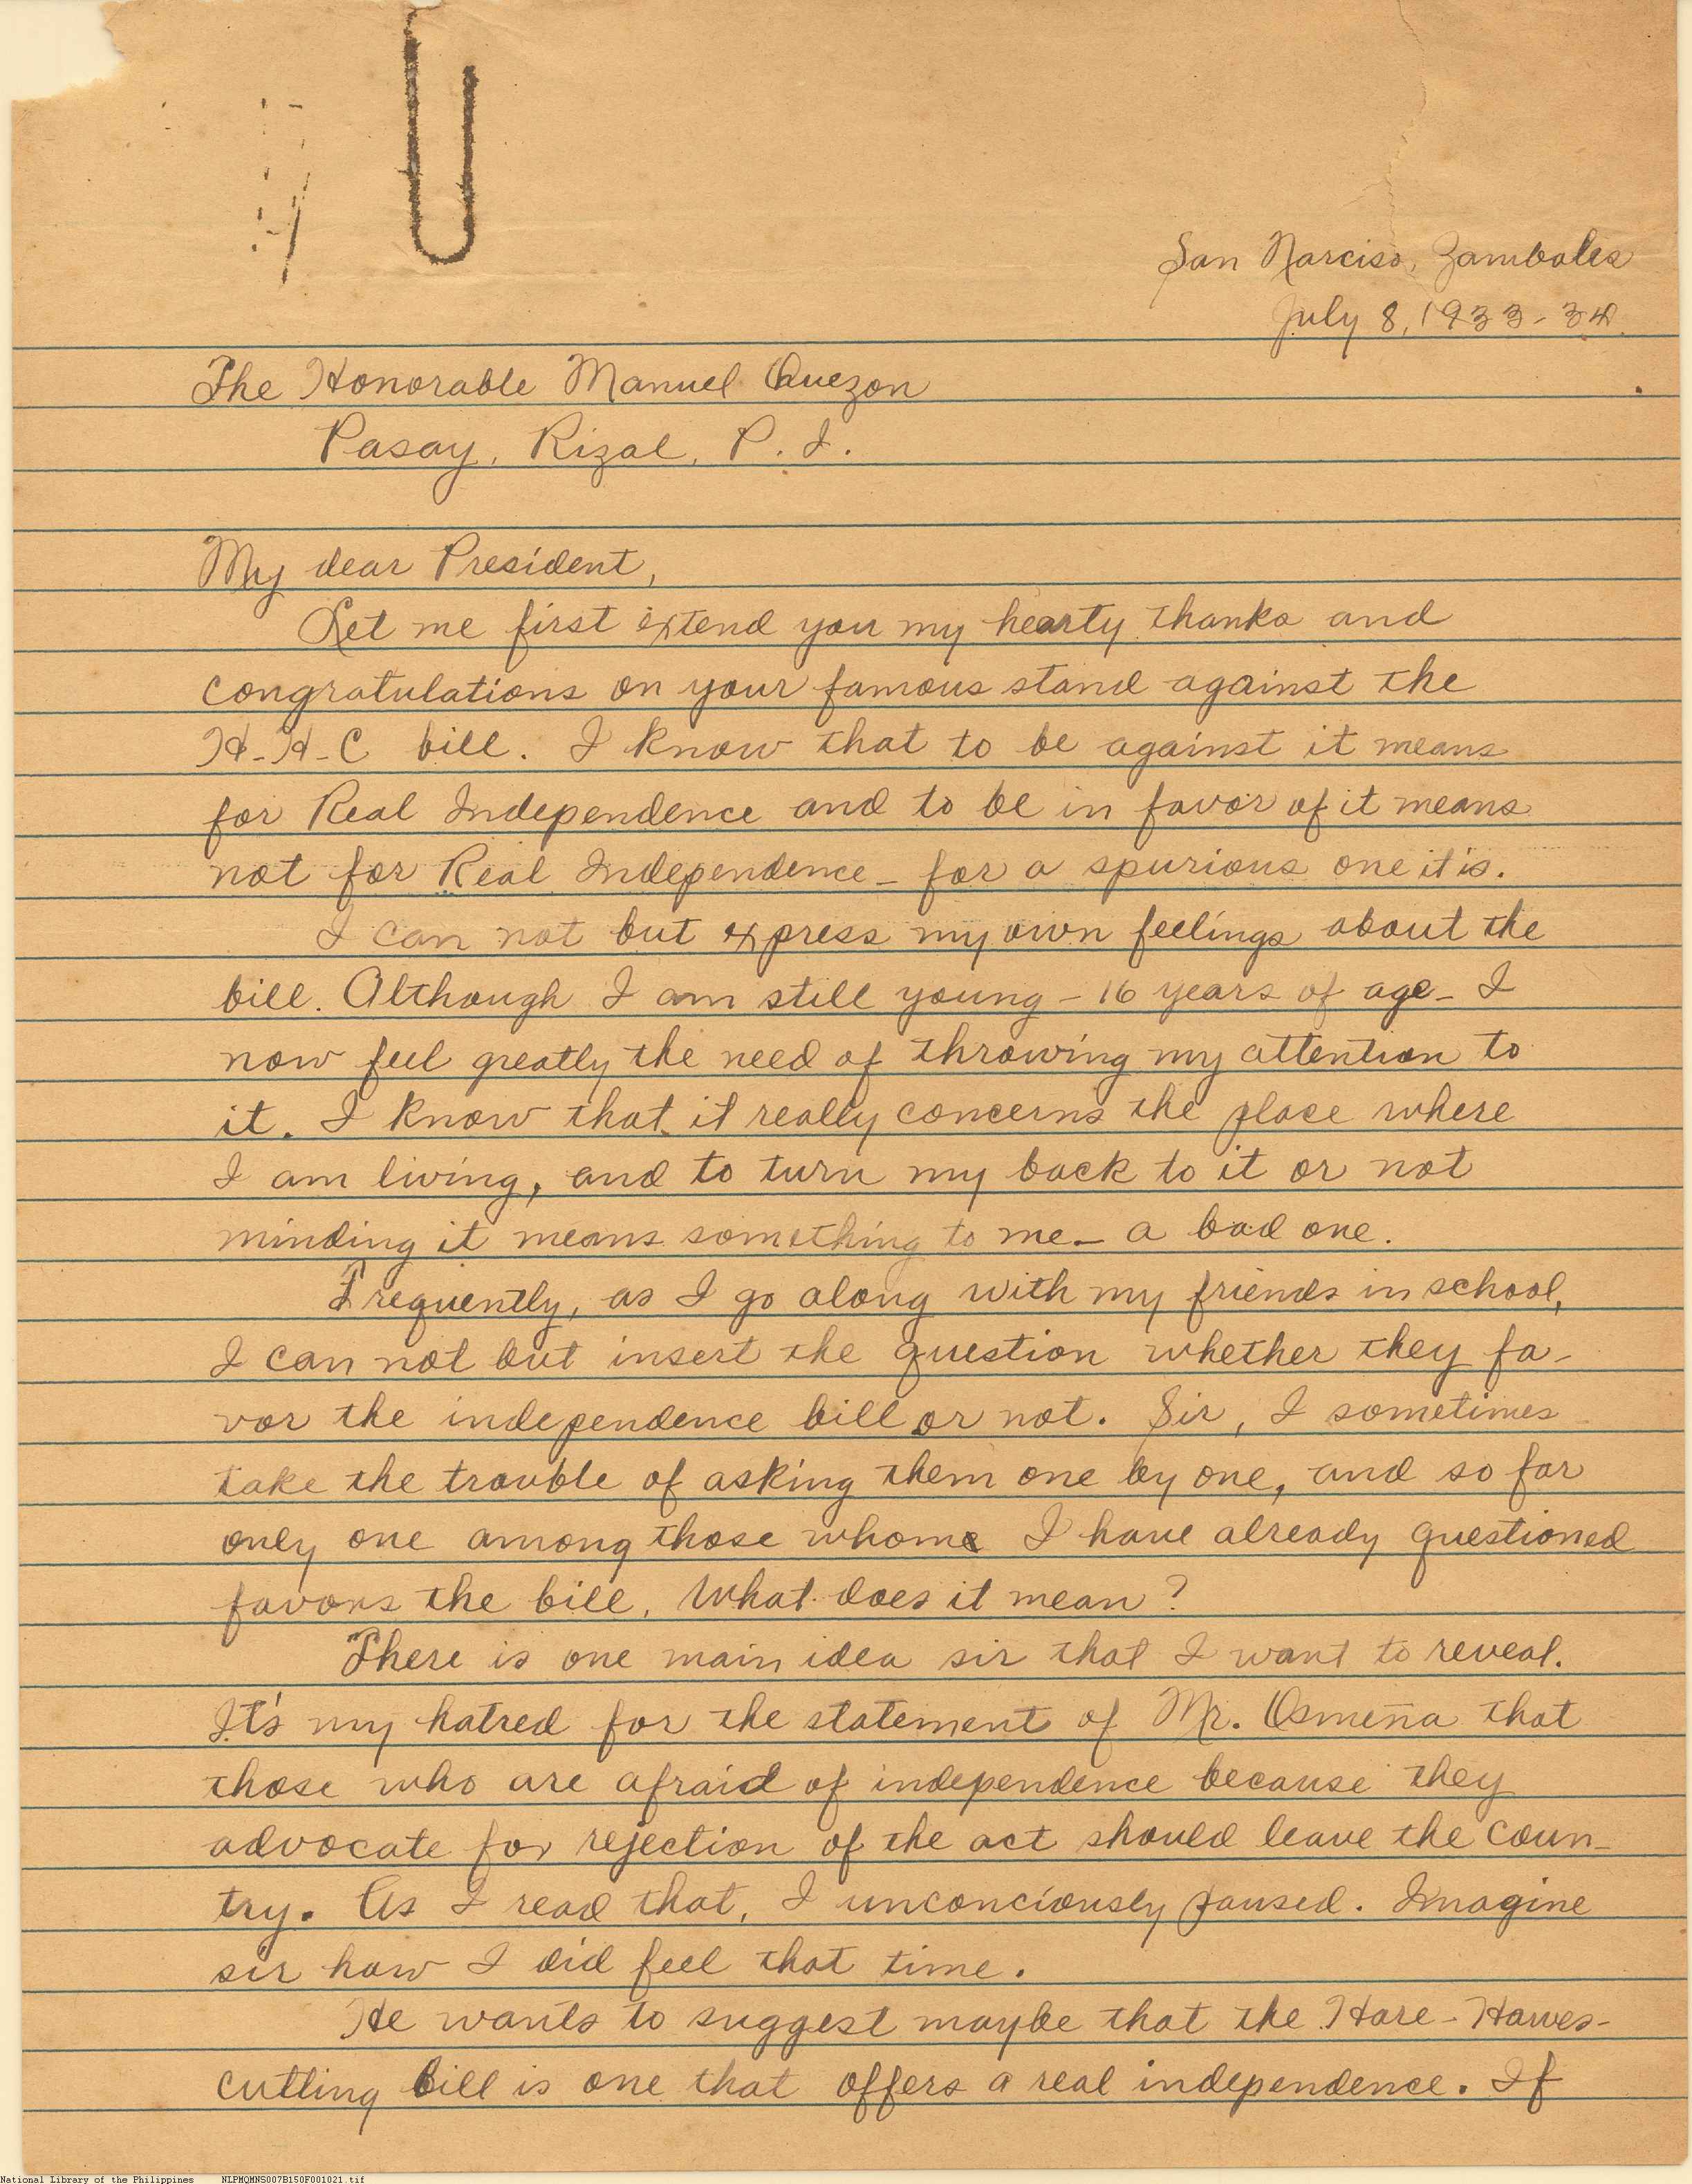 San Narciso, Zambales
July 8, 1933-34.
The Honorable Manuel Quezon
Pasay, Rizal, P. I.
My dear President,
Let me first extend you my hearty thanks and
congratulations on your famous stand against the
H-H-C bill. I know that to be against it means
for Real Independence and to be in favor of it means
not for Real Independence - for a spurious one it is.
I can not but express my own feelings about the
bill. Although I am still young - 16 years of age - I
now feel greatly the need of throwing my attention to
it. I know that it really concerns the place where
I am living, and to turn my back to it or not
minding it means something to me - a bad one.
Frequently, as I go along with my friends in school,
I can not but insert the question whether they fa-
vor the independence bill or not. Sir, I sometimes
take the trouble of asking them one by one, and so far
only one among those whom I have already questioned
favors the bill. What does it mean?
There is one main idea sir that I want to reveal.
It's my hatred for the statement of Mr. Osmeña that
those who are afraid of independence because they
advocate for rejection of the act should leave the coun-
try. As I read that, I unconciously paused. Imagine
sir how I did feel that time.
He wants to suggest maybe that the Hare-Hawes-
cutting bill is one that offers a real independence. If
National Library of the Philippines NLPMQMNS007B150F001021.tif